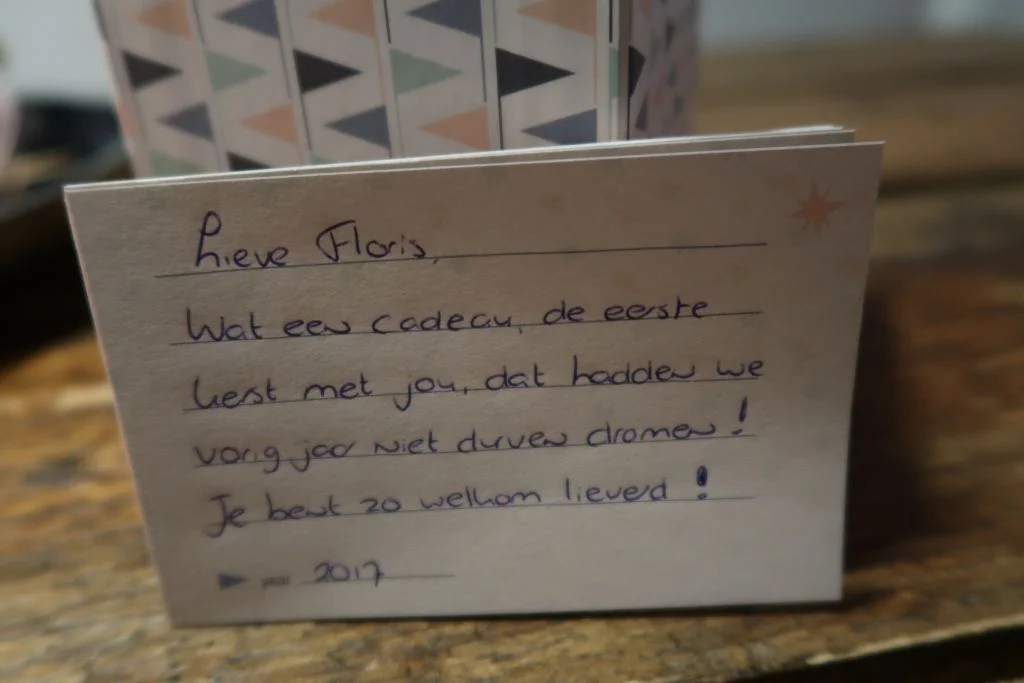 Lieve Floris,
Wat een cadeau, de eerste
kerst met jou, dat hadden we
vorig jaar niet durven dromen!
Je bent zo welkom lieverd!
jaar 2017